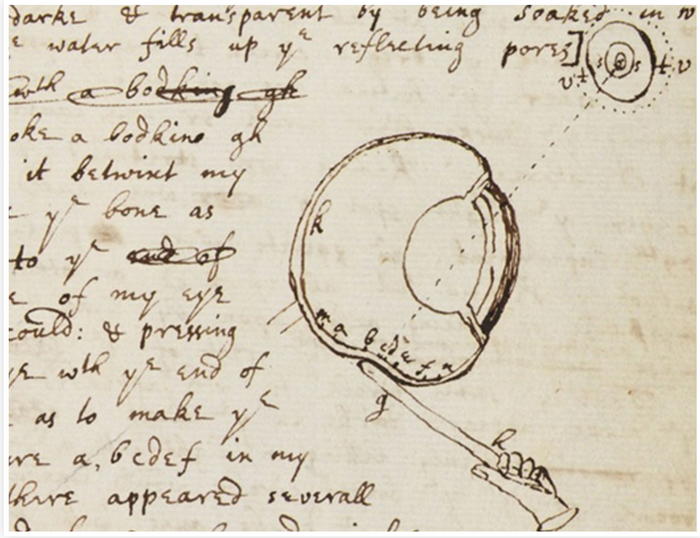 darke & transparent by being soaked in
water fills up yᵉ reflecting pores]
wth a bodkine gh
oke a bodkine gh
it betwixt my
yᵉ bone as
to yᵉ end of
of my eye
could: & pressing
ye wth yᵉ end of
as to make yᵉ
ure a, bcdef in my
there appeared severall
v t s s t v
k
m a b c d e f n
g
h